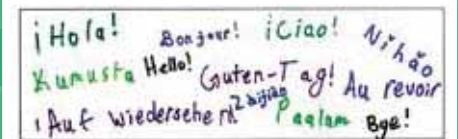 ¡Hola! Bonjour! ¡Ciao! Nǐhǎo
Kumusta Hello! Guten-Tag! Au revoir
¡Auf wiedersehen! Zàijiàn Paalam Bye!